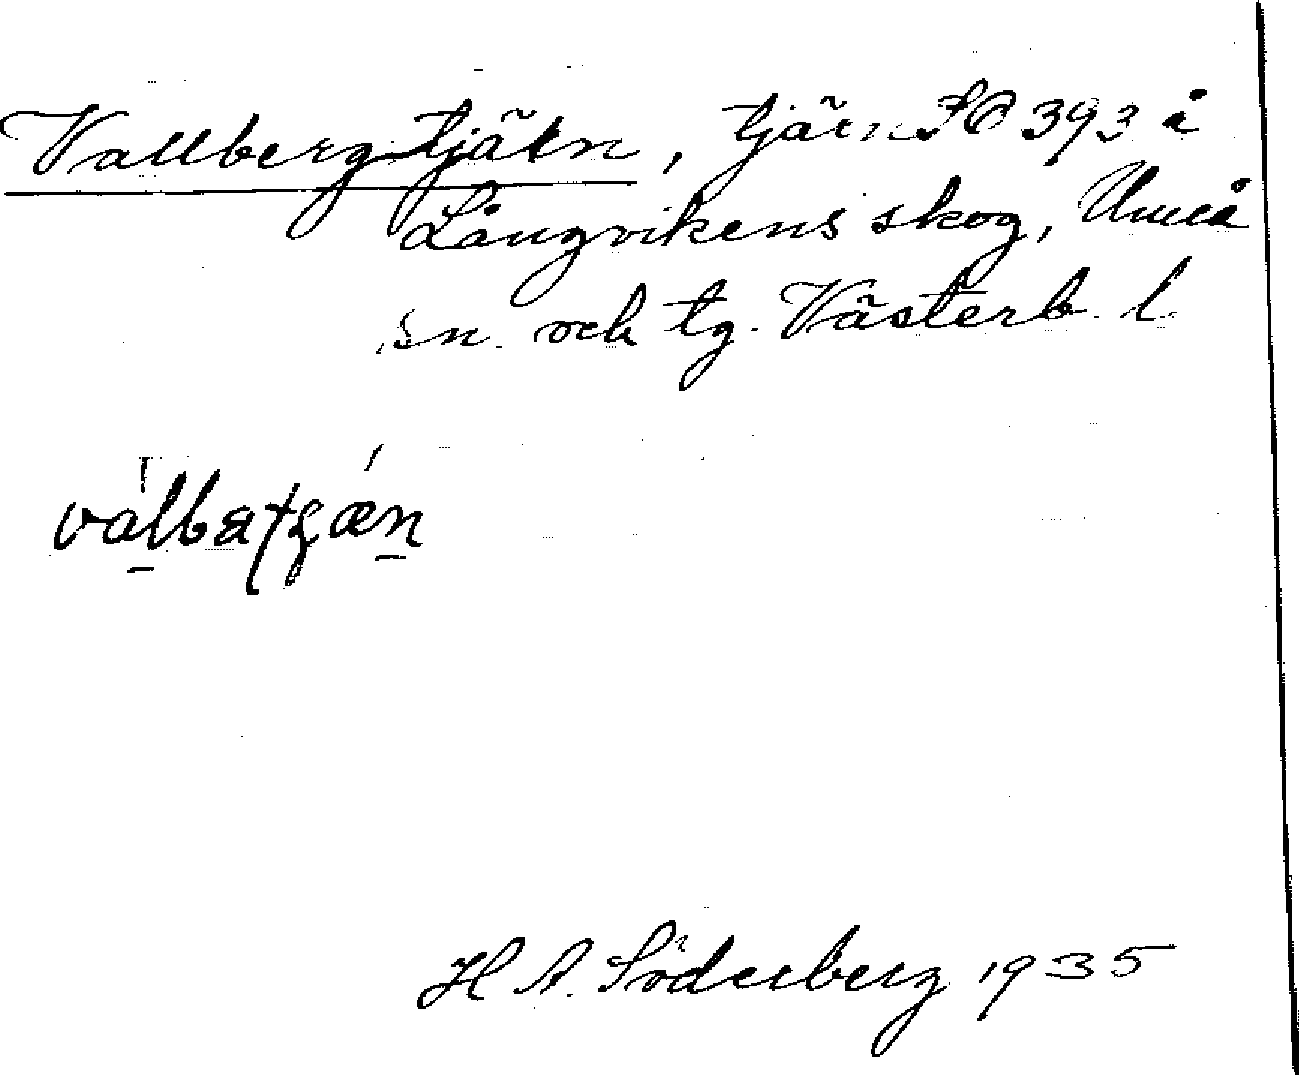 Vallbergtjärn, tjärn SO 393 å
Långvikens skog, Umeå
sn. och tg. Västerb. l.
H A. Söderberg 1935